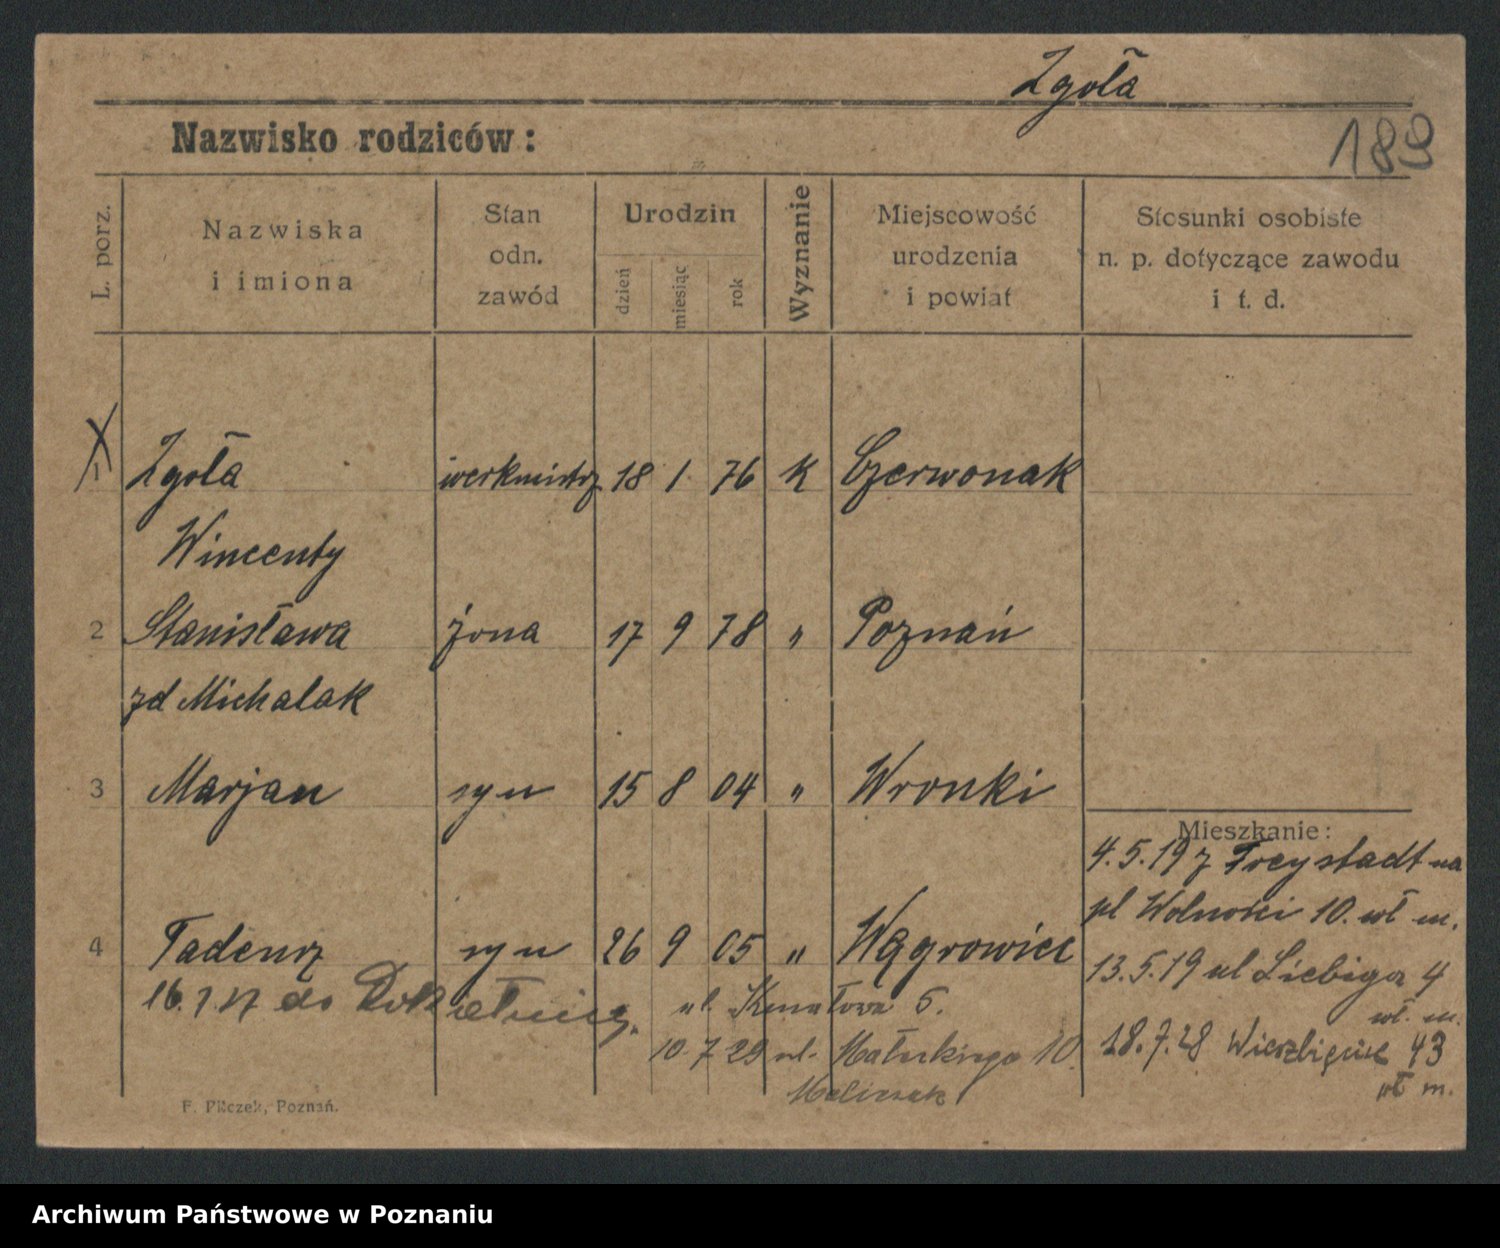 Zgoła
189
Nazwisko rodziców:
L. porz.
Nazwiska
i imiona
Stan
odn.
zawód
Urodzin
dzień
miesiąc
rok
Wyznanie
Miejscowość
urodzenia
i powiat
Stosunki osobiste
n. p. dotyczące zawodu
i t. d.
1 Zgoła werkmistrz 18 1 76 K Czerwonak
Wincenty
2 Stanisława żona 17 9 78 " Poznań
zd Michalak
3 Marjan syn 15 8 04 " Wronki
Mieszkanie:
4.5.19 z Freystadt na
pl Wolności 10. wł m.
4 Tadeusz syn 26 9 05 " Wągrowiec
13.5.19 ul Liebiga 4
wł. m.
16.1.17 do
ul. 5.
10.7.29 ul. 10.
18.7.28 Wierzbięcice 43
wł m.
F. Pilczek, Poznań.
Archiwum Państwowe w Poznaniu